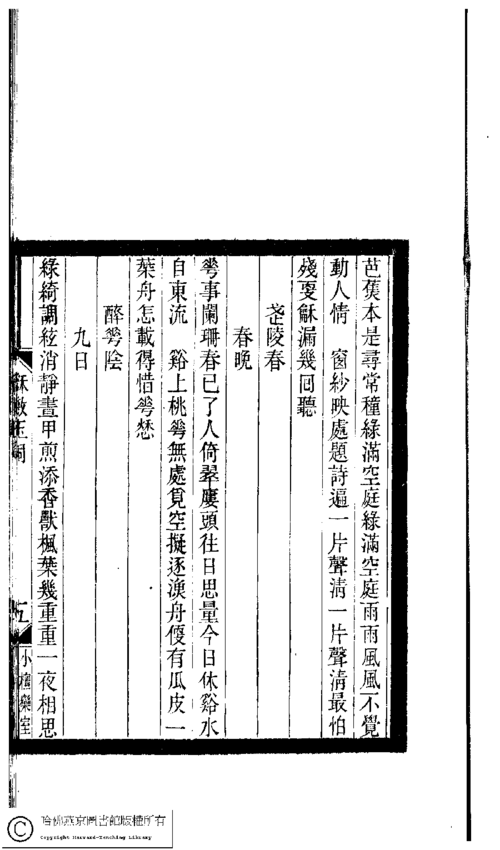 芭蕉本是尋常種綠滿空庭綠滿空庭雨雨風風不覺
動人情　窗紗映處題詩遍一片聲淸一片聲淸最怕
殘更龢漏幾回聽
武陵春
春晚
琴事闌珊春已了人倚翠廔頭往日思量今日休谿水
自東流　谿上桃琴無處覓空擬逐漁舟偠有瓜皮一
葉舟怎載得惜琴愁
醉琴陰
九日
綠綺調絃消靜晝甲煎添香獸楓葉幾重重一夜相思
漱玉詞
五
小檀欒室
哈佛燕京圖書館版權所有
Copyright Harvard-Yenching Library